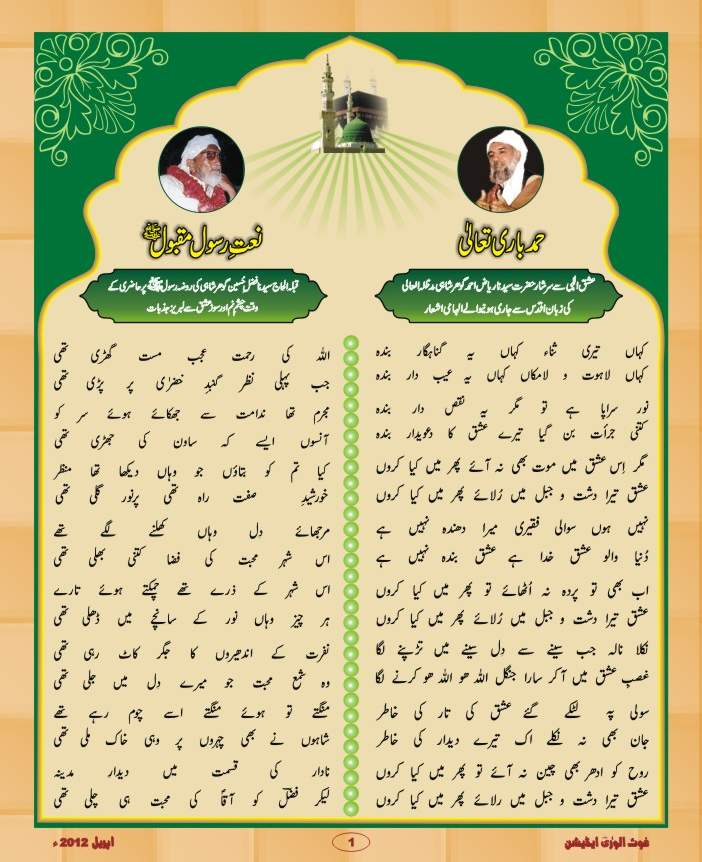 حمد باری تعالیٰ
عشق الٰہی سے سرشار حضرت سیدنا ریاض احمد گوھر شاہی مدظلہ العالی
کی زبان اقدس سے جاری ہونیوالے الہامی اشعار
کہاں تیری ثناء کہاں یہ گناہگار بندہ
کہاں لاہوت و لامکاں کہاں یہ عیب دار بندہ
نور سراپا ہے تو مگر یہ نقص دار بندہ
کتنی جرأت بن گیا تیرے عشق کا دعویدار بندہ
مگر اِس عشق میں موت بھی نہ آئے پھر میں کیا کروں
عشق تیرا دشت و جبل میں رُلائے پھر میں کیا کروں
نہیں ہوں سوالی فقیری میرا دھندہ نہیں ہے
دُنیا والو عشق خدا ہے عشق بندہ نہیں ہے
اب بھی تو پردہ نہ اُٹھائے تو پھر میں کیا کروں
عشق تیرا دشت و جبل میں رُلائے پھر میں کیا کروں
نکلا نالہ جب سینے سے دل سینے میں تڑپنے لگا
غضبِ عشق میں آکر سارا جنگل اللہ ھو اللہ ھو کرنے لگا
سولی پہ لٹکے گئے عشق کی تار کی خاطر
جان بھی نہ نکلے اک تیرے دیدار کی خاطر
روح کو ادھر بھی چین نہ آئے تو پھر میں کیا کروں
عشق تیرا دشت و جبل میں رلائے پھر میں کیا کروں
نعتِ رسول مقبول ﷺ
قبلہ الحاج سیدنا فضل حُسین گوھر شاہی کی روضہ رسول ﷺ پر حاضری کے
وقت چشم نم اور سوز عشق سے لبریز جذبات
اللہ کی رحمت عجب مست گھڑی تھی
جب پہلی نظر گنبدِ خضرٰی پر پڑی تھی
مجرم تھا ندامت سے جھکائے ہوئے سر کو
آنسوں ایسے کہ ساون کی جھڑی تھی
کیا تم کو بتاؤں جو وہاں دیکھا تھا منظر
خورشیدِ صفت راہ تھی پرنور گلی تھی
مرجھائے دل وہاں کھلنے لگے تھے
اس شہر محبت کی فضا کتنی بھلی تھی
اس شہر کے ذرے تھے چمکتے ہوئے تارے
ہر چیز وہاں نور کے سانچے میں ڈھلی تھی
نفرت کے اندھیروں کا جگر کاٹ رہی تھی
وہ شمع محبت جو میرے دل میں جلی تھی
منگتے تو ہوئے منگتے اسے چوم رہے تھے
شاہوں نے بھی چہروں پر وہی خاک ملی تھی
نادار کی قسمت میں دیدار مدینہ
لیکر فضلؔ کو آقاؐ کی محبت ہی چلی تھی
غوث الورٰی ایڈیشن
1
اپریل 2012ء